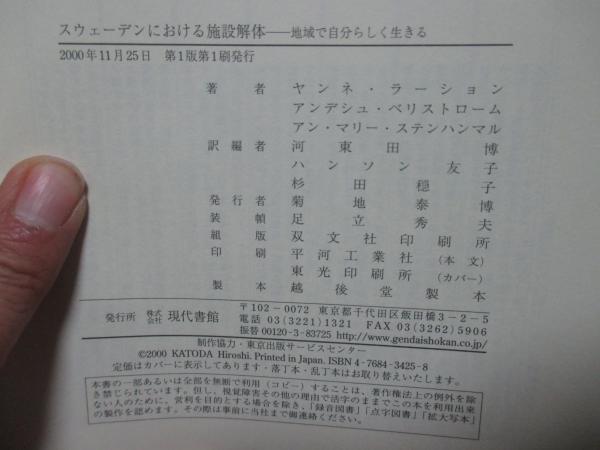 スウェーデンにおける施設解体――地域で自分らしく生きる
2000年11月25日 第1版第1刷発行
著者 ヤンネ・ラーション
アンデシュ・ベリストローム
アン・マリー・ステンハンマル
訳編者 河東田 博
ハンソン友子
杉田穏子
発行者 菊地泰博
装幀 足立秀夫
組版 双文社印刷所
印刷 平河工業社(本文)
東光印刷所(カバー)
製本 越後堂製本
発行所 株式会社 現代書館 〒102-0072 東京都千代田区飯田橋3-2-5
電話 03(3221)1321 FAX 03(3262)5906
振替 00120-3-83725 http://www.gendaishokan.co.jp/
制作協力・東京出版サービスセンター
©2000 KATODA Hiroshi. Printed in Japan. ISBN 4-7684-3425-8
定価はカバーに表示してあります・落丁本・乱丁本はお取り替えいたします。
本書の一部あるいは全部を無断で利用(コピー)することは、著作権法上の例外を除
き禁じられています。但し、視覚障害その他の理由で活字のままでこの本を利用出来
ない人のために、営利を目的とする場合を除き、「録音図書」「点字図書」「拡大写本」
の製作を認めます。その際は事前に当社まで御連絡ください。